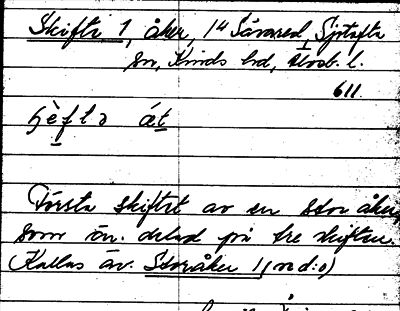 Skifte 1, åker, 1⁴ Sävared, Sjötofta
sn, Kinds hd, Älvsb. l.
611
ʃèfta ǽt
Första skiftet av en stor åker,
som är delad på tre skiften.
(Kallas äv. Storåker 1 (se d:o)